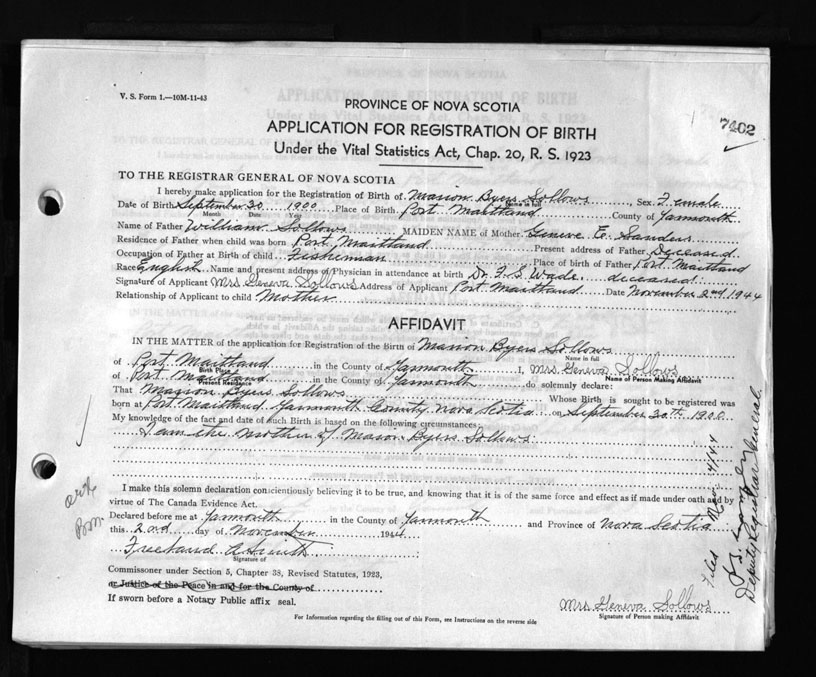 V. S. Form 1.—10M-11-43
7402
PROVINCE OF NOVA SCOTIA
APPLICATION FOR REGISTRATION OF BIRTH
Under the Vital Statistics Act, Chap. 20, R. S. 1923
TO THE REGISTRAR GENERAL OF NOVA SCOTIA
I hereby make application for the Registration of Birth of Marion Byers Sollows Sex Female
Name in full
Date of Birth September 30 1900 Place of Birth Port Maitland County of Yarmouth
Month Date Year
Name of Father William Sollows MAIDEN NAME of Mother Geneve E. Sanders
Residence of Father when child was born Port Maitland Present address of Father Deceased
Occupation of Father at Birth of child Fisherman Place of birth of Father Port Maitland
Race English Name and present address of Physician in attendance at birth Dr. F. S. Wade deceased
Signature of Applicant Mrs Geneva Sollows Address of Applicant Port Maitland Date November 2nd 1944
Relationship of Applicant to child Mother
AFFIDAVIT
IN THE MATTER of the application for Registration of the Birth of Marion Byers Sollows
Name in full
of Port Maitland in the County of Yarmouth I, Mrs Geneva Sollows
Birth Place Name of Person Making Affidavit
of Port Maitland in the County of Yarmouth do solemnly declare:
Present Residence
That Marion Byers Sollows Whose Birth is sought to be registered was
born at Port Maitland Yarmouth County Nova Scotia on September 30th 1900
My knowledge of the fact and date of such Birth is based on the following circumstances,
I am the mother of Marion Byers Sollows.
I make this solemn declaration conscientiously believing it to be true, and knowing that it is of the same force and effect as if made under oath and by
virtue of The Canada Evidence Act.
Declared before me at Yarmouth in the County of Yarmouth and Province of Nova Scotia
this 2nd day of November 1944
Freeland A Smith
Signature of
Commissioner under Section 5, Chapter 38, Revised Statutes, 1923,
or Justice of the Peace in and for the County of
If sworn before a Notary Public affix seal.
Mrs Geneva Sollows
Signature of Person making Affidavit
For Information regarding the filling out of this Form, see Instructions on the reverse side
Filed Nov 4/44
Deputy Registrar General